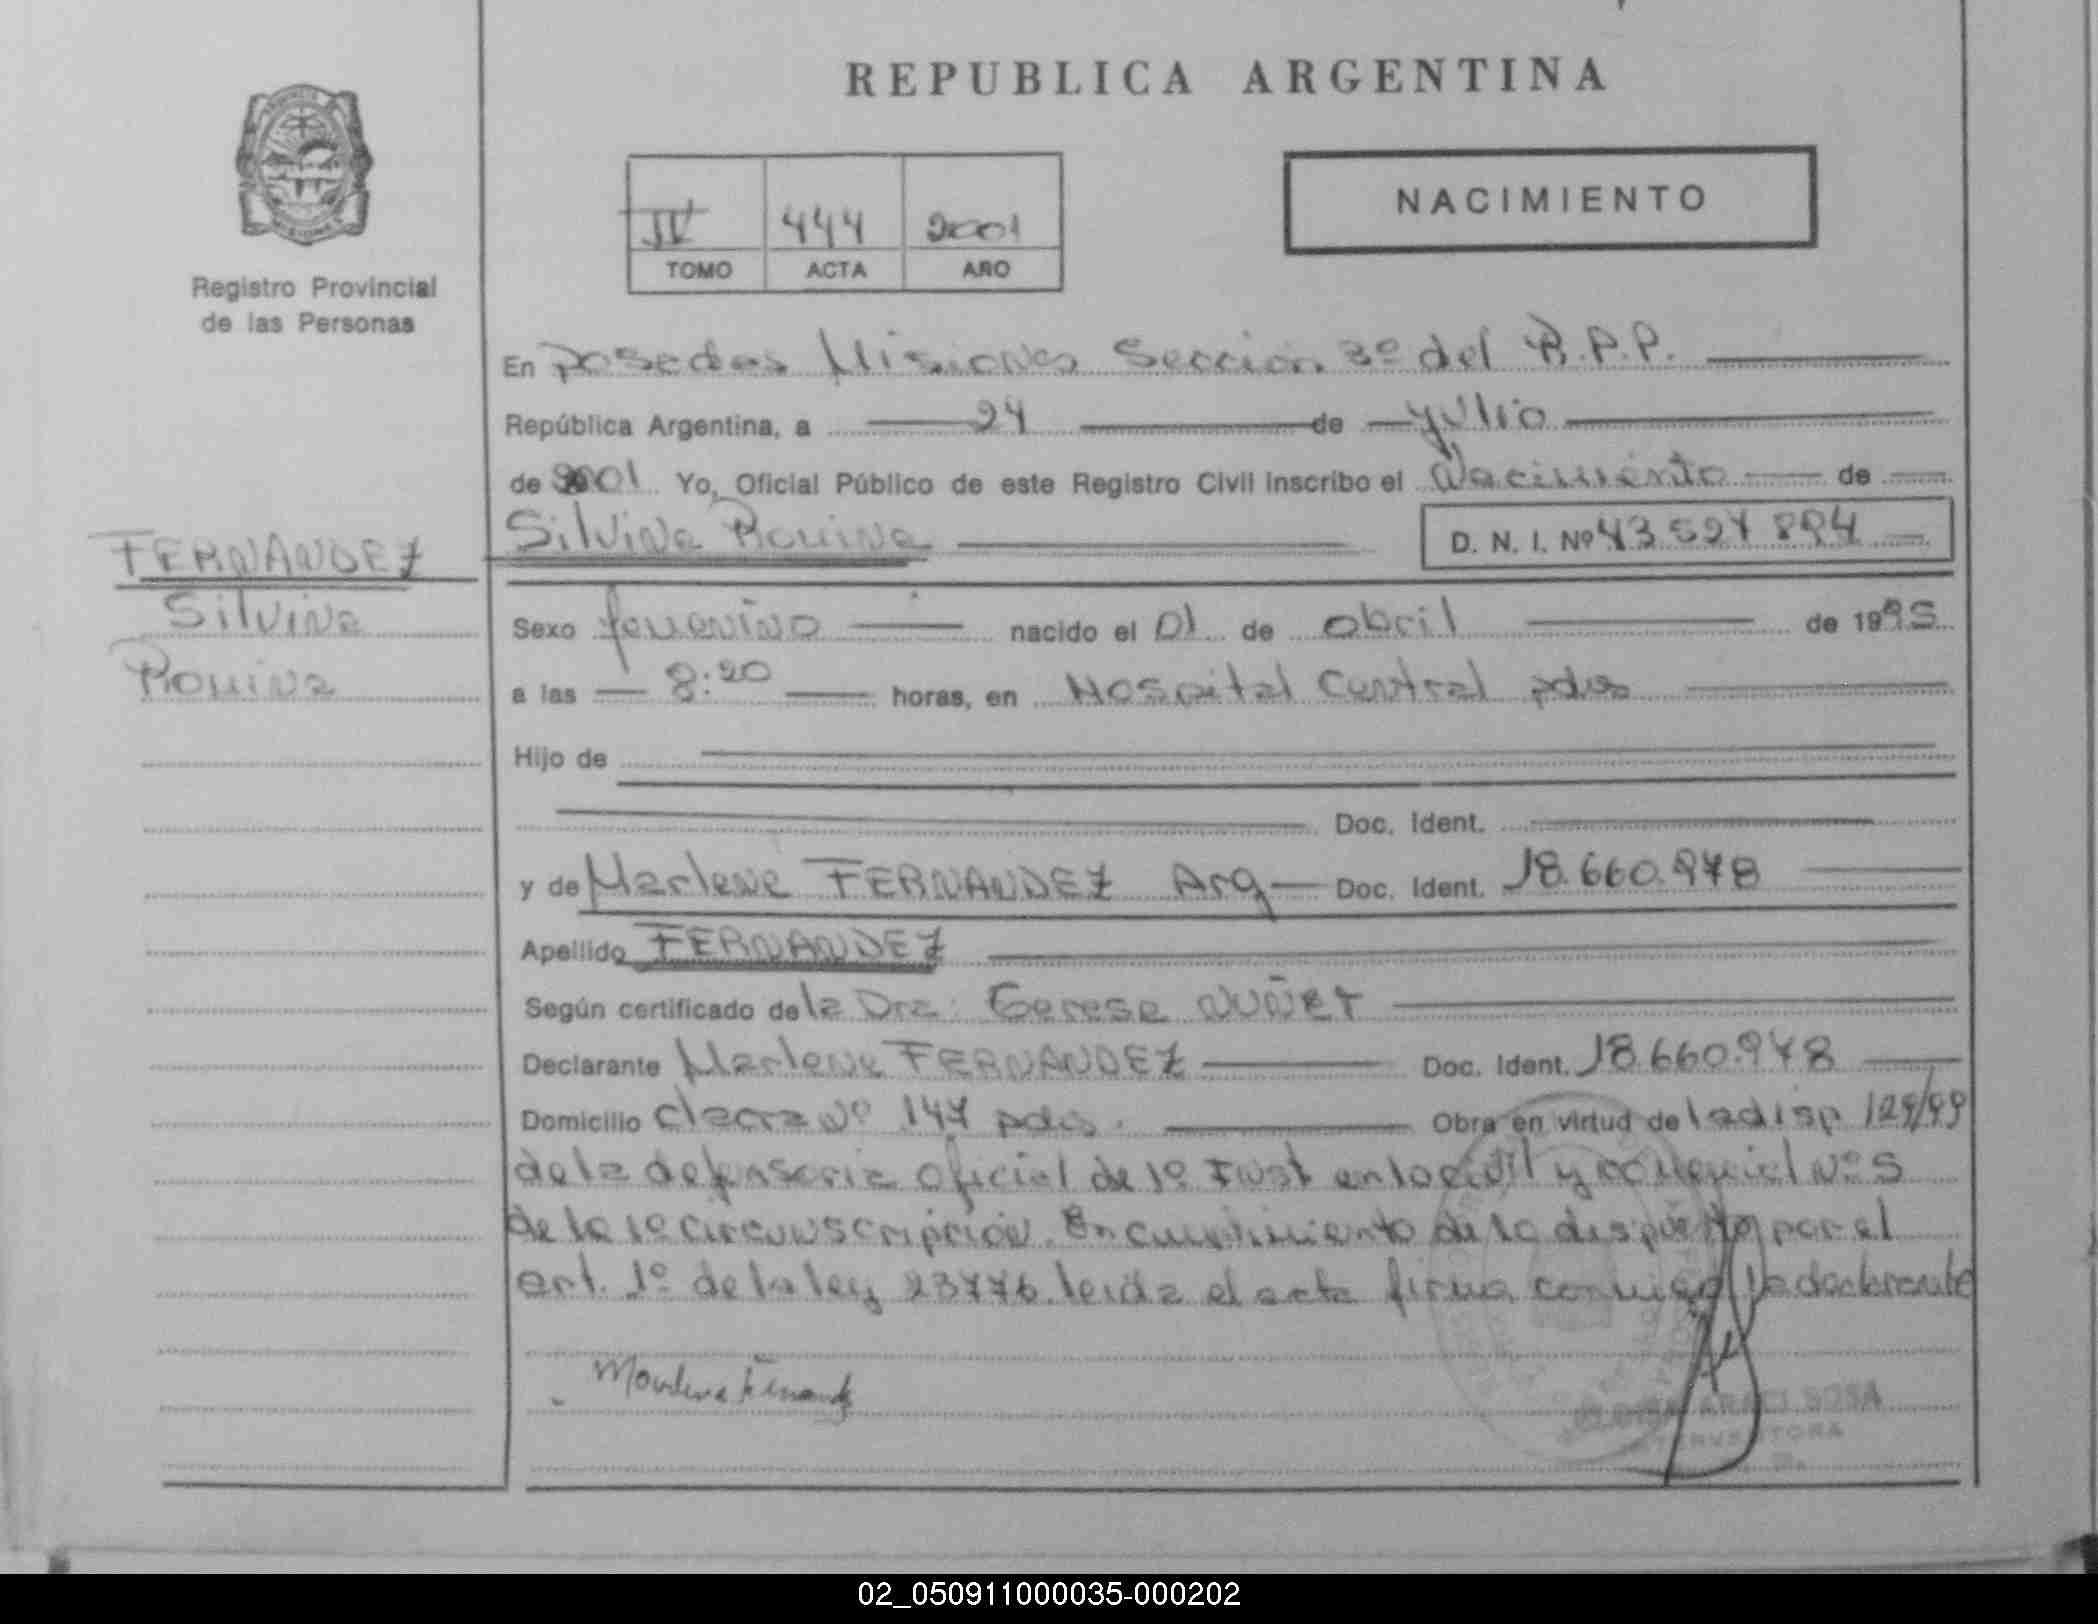 REPUBLICA ARGENTINA
NACIMIENTO
IV 444 2001
TOMO ACTA AÑO
Registro Provincial
de las Personas
En Posadas Misiones Sección 3º del R.P.P.
República Argentina, a 24 de Julio
de 2001 Yo, Oficial Público de este Registro Civil inscribo el Nacimiento de
FERNANDEZ
Silvina
Romina
Silvina Romina D. N. I. Nº 43.527 894
Sexo femenino nacido el 01 de abril de 1995
a las 8:20 horas, en Hospital Central pdas
Hijo de
Doc. Ident.
y de Marlene FERNANDEZ Arg Doc. Ident. 18.660.978
Apellido FERNANDEZ
Según certificado de la Dra: Teresa NUÑEZ
Declarante Marlene FERNANDEZ Doc. Ident. 18.660.978
Domicilio chacra Nº 147 pdas. Obra en virtud de la disp 129/99
de la defensoria oficial de 1º Inst en lo civil y comercial Nº 5
de la 1º circunscripción. En cumplimiento de lo dispuesto por el
art. 1º de la ley 23776 leida el acta firma conmigo la declarante
Marlene Fernandez
ARACI SOSA
INTERVENTORA
02_050911000035-000202